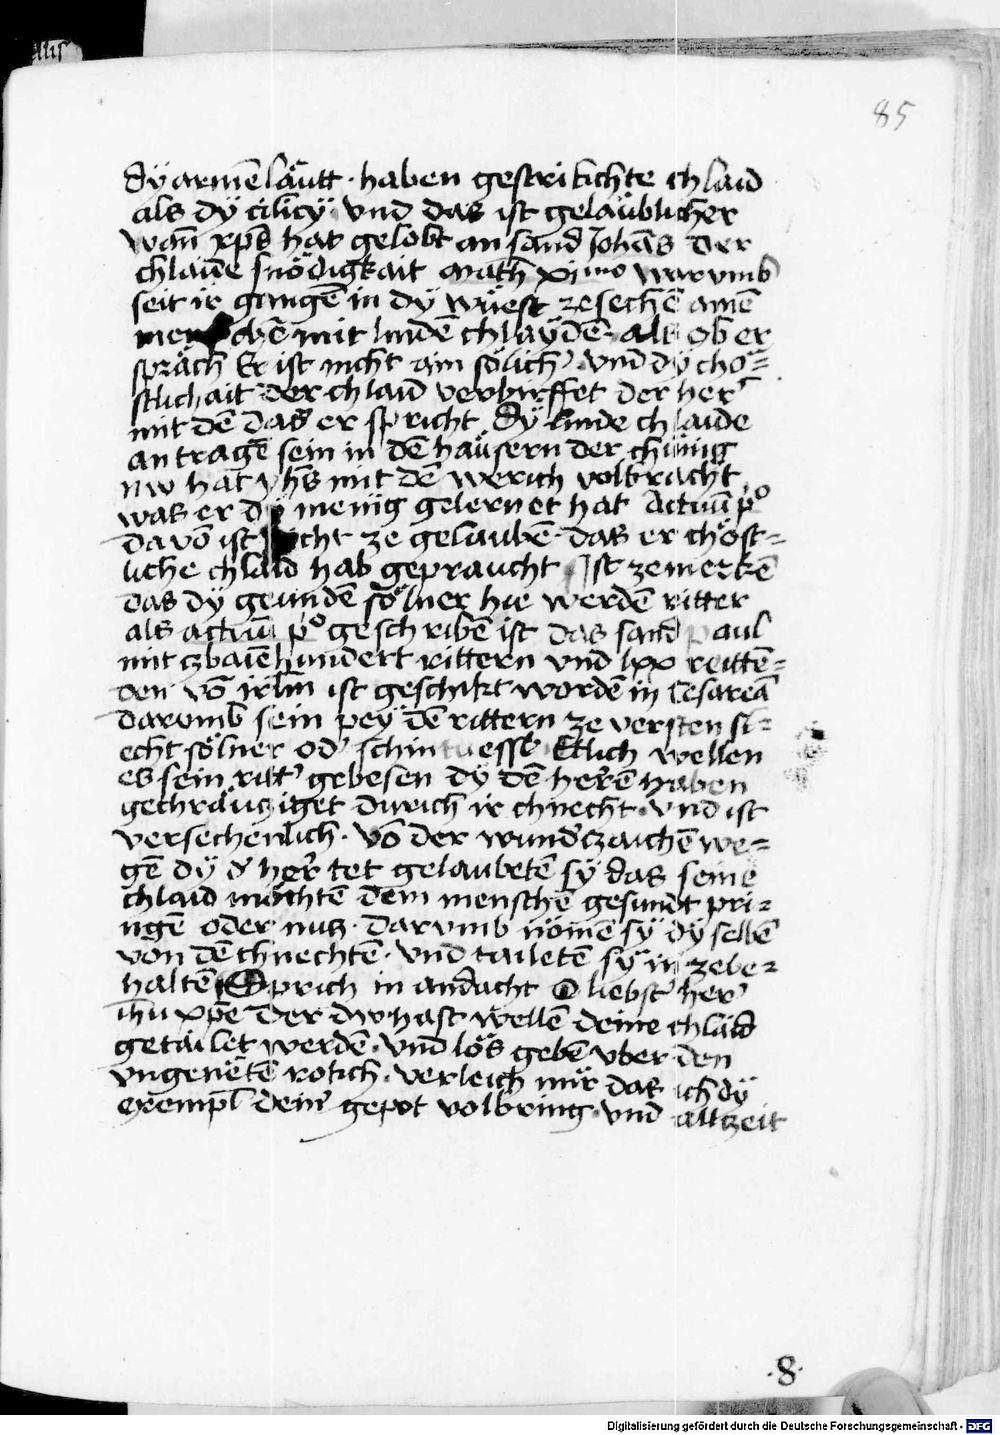 85
dÿ armē läutt · haben gestrikchte chlaid
als dÿ cilicÿ · vnd das ist geläublicher
wañ xp̄s hat gelobt an sand Johās der
chlaide snödigkait Math̄ xjmo warvmb
seit ir gangē in dÿ wüest ze sechē ainē
menschē mit lindē chlaydē · als ob er
spräch Er ist nicht ain sölich' · vnd dÿ chö=
stlichait der chlaid verbirffet der her'
mit dē das er spricht dÿ linde chlaide
an tragē sein in dē haüsern der chünig
nw hat yh̄s mit dē werich volbracht
was er dÿ menig gelernet hat Actuū p̊
da vō ist nicht ze gelaubē · das er chöst=
liche chlaid hab gepraucht Ist ze merkē
das dÿ geundē sölner hie werdē ritter
als actuū p̊ geschribē ist das sand paul
mit czbaiē hundert rittern vnd lxx reittē=
den vō irl̄m ist geschikt wordē in Cesareā
darvmb sein peÿ dē rittern ze versten sl=
echt sölner od' schintuessl' Etlich wellen
es sein ritt' gebesen dÿ dē herrē haben
gechräucziget durich ir chnecht · vnd ist
versechenlich · vō der wund'czaichē we=
gē dÿ d' her tet gelaubetē sÿ das seine
chlaid möchtē dem menschē gesundt pri=
ngē oder nucz · darvmb nömē sÿ dÿ selbē
von dē chnechtē · vnd tailetē sÿ in ze be=
haltē Sprich in andacht O liebst' her'
ih̄u xp̄e der dw hast wellē deine chlaid
getailet werdē · vnd lös gebē vber den
vngenētē rokch · verleich mir das ich dÿ
exempl dein' gepot volbring · vnd allczeit
· 8 ·
Digitalisierung gefördert durch die Deutsche Forschungsgemeinschaft - DFG